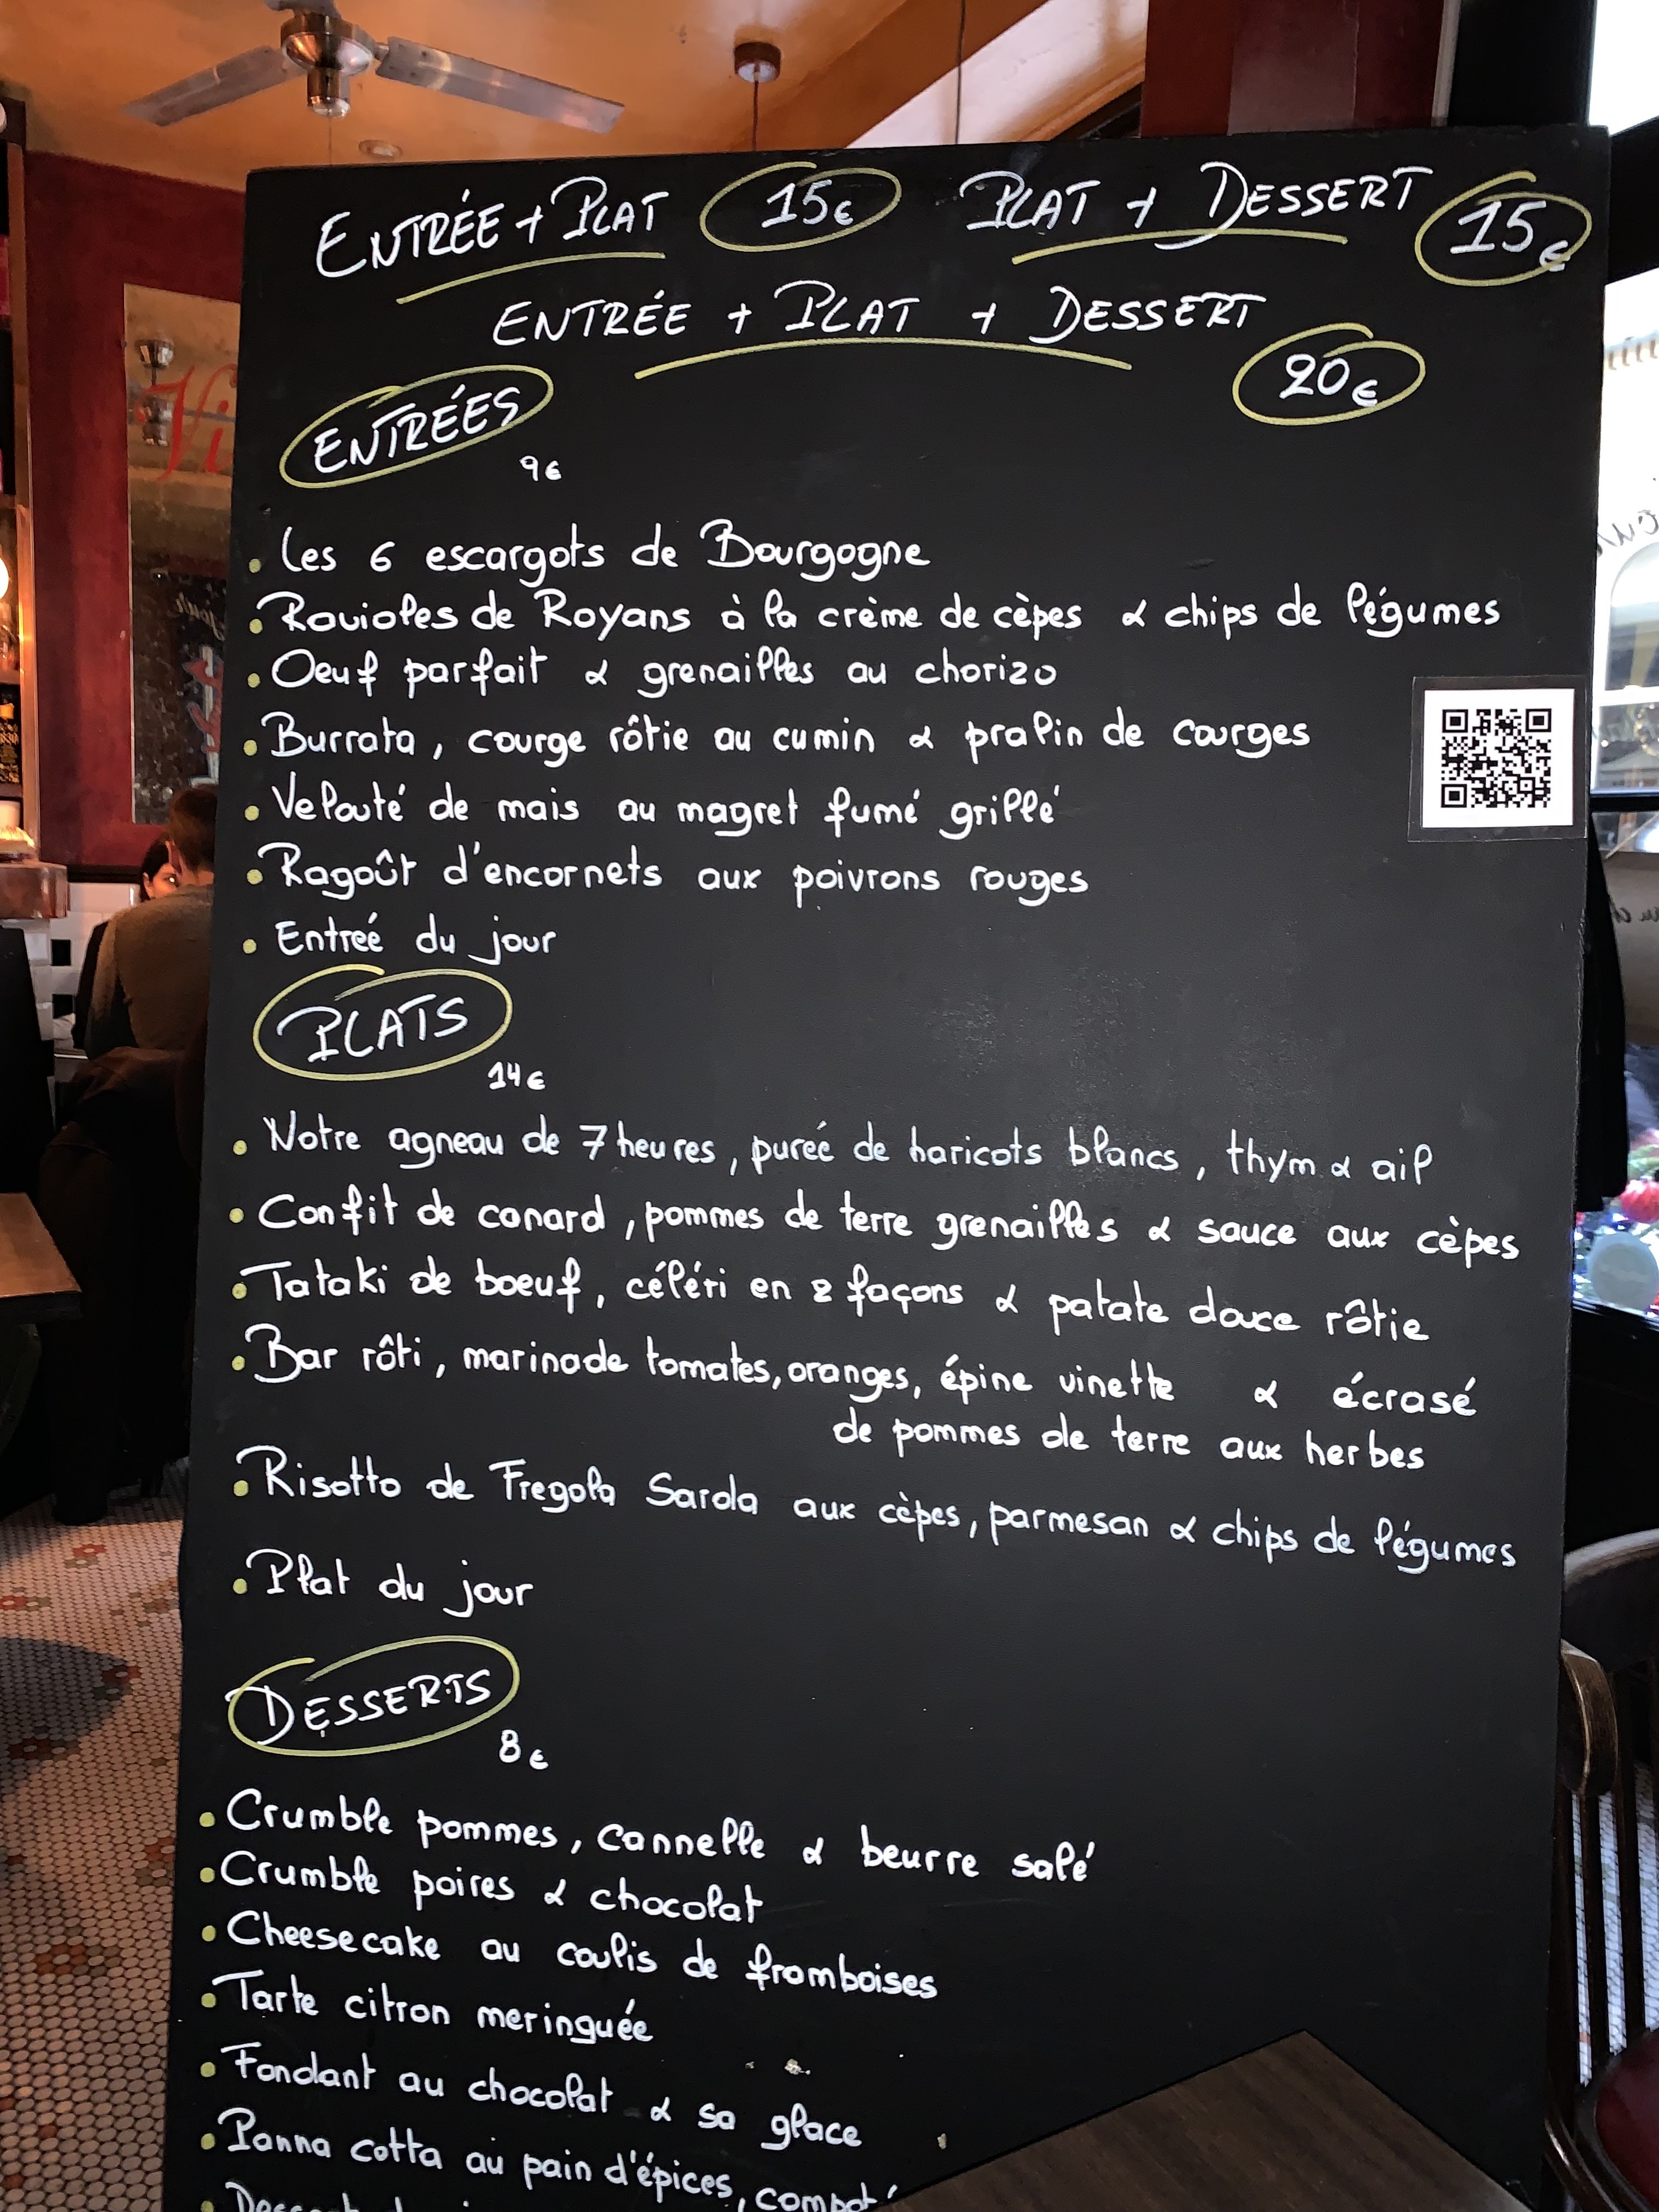 ENTRÉE + PLAT 15€ PLAT + DESSERT 15€
ENTRÉE + PLAT + DESSERT
20€
ENTRÉES
9€
• Les 6 escargots de Bourgogne
• Ravioles de Royans à la crème de cèpes & chips de légumes
• Oeuf parfait & grenailles au chorizo
• Burrata, courge rôtie au cumin & pralin de courges
• Velouté de mais au magret fumé grillé
• Ragoût d'encornets aux poivrons rouges
• Entreé du jour
PLATS
14€
• Notre agneau de 7 heures, pureé de haricots blancs, thym & ail
• Confit de canard, pommes de terre grenailles & sauce aux cèpes
• Tataki de boeuf, céléri en 2 façons & patate douce rôtie
• Bar rôti, marinade tomates, oranges, épine vinette & écrasé
de pommes de terre aux herbes
• Risotto de Fregola Sarda aux cèpes, parmesan & chips de légumes
• Plat du jour
DESSERTS
8€
• Crumble pommes, cannelle & beurre salé
• Crumble poires & chocolat
• Cheesecake au coulis de framboises
• Tarte citron meringuée
• Fondant au chocolat & sa glace
• Panna cotta au pain d'épices,
Vi